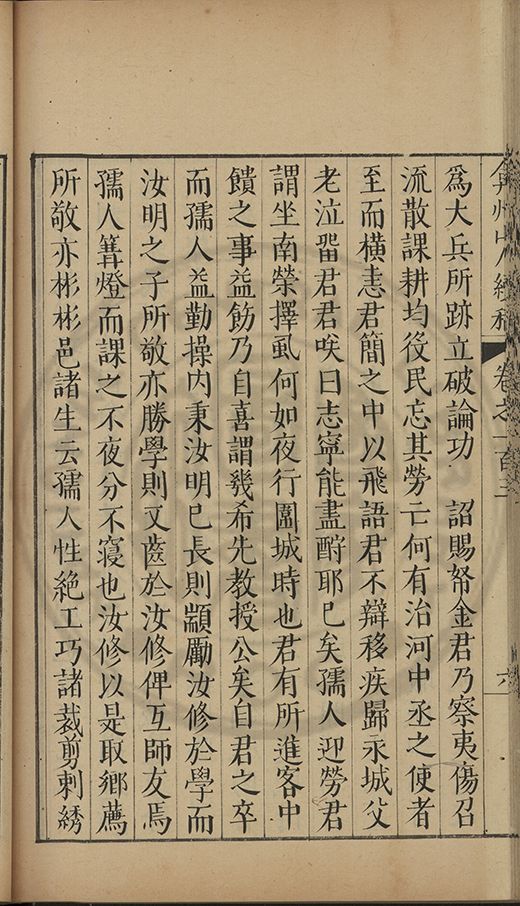 弇州山人續稿 卷之一百三 六
爲大兵所跡立破論功　詔賜帑金君乃察夷傷召
流散課耕均役民忘其勞亡何有治河中丞之使者
至而橫恚君簡之中以飛語君不辯移疾歸永城父
老泣畱君君唉曰志寧能盡酧耶已矣孺人迎勞君
謂坐南榮擇虱何如夜行圍城時也君有所進客中
饋之事益飭乃自喜謂幾希先教授公矣自君之卒
而孺人益勤操內秉汝明已長則顓勵汝修於學而
汝明之子所敬亦勝學則又齒於汝修俾互師友焉
孺人篝燈而課之不夜分不寢也汝修以是取鄉薦
所敬亦彬彬邑諸生云孺人性絶工巧諸裁剪刺綉